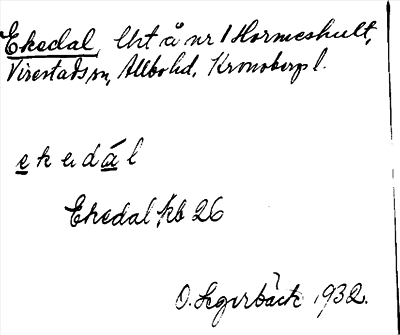 Ekedal, lht å nr 1 Hormeshult,
Virestads sn, Allbo hd, Kronobergs l.
e k e d á l
Ekedal, kb 26
O. Segerbäck 1932.